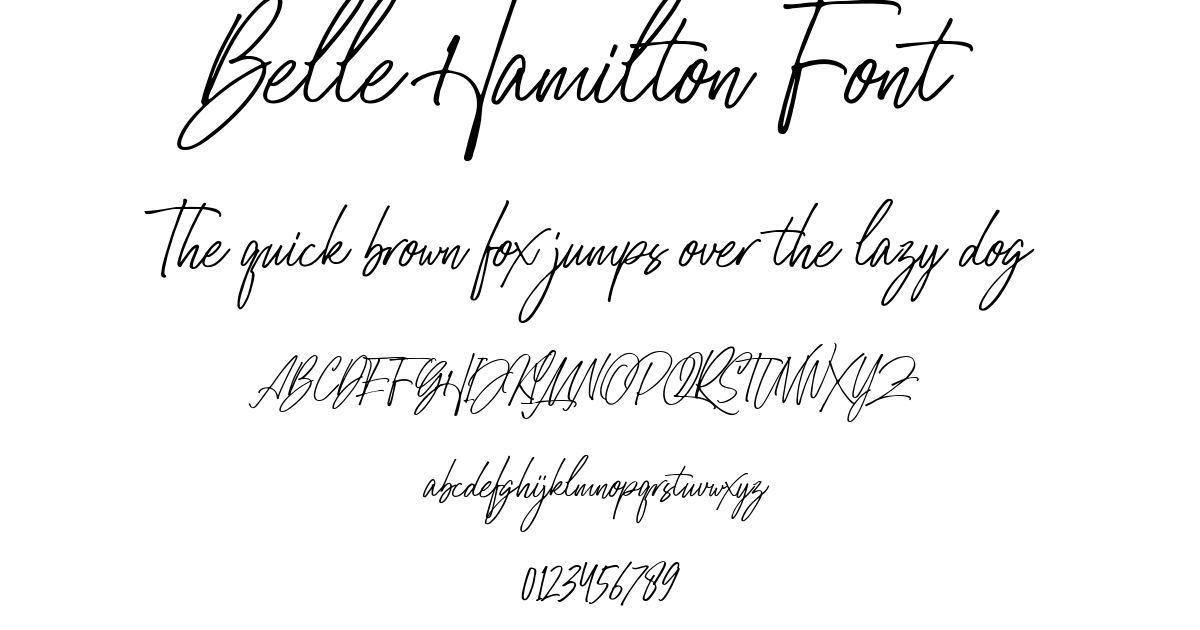 Belle Hamilton Font
The quick brown fox jumps over the lazy dog
ABCDEFGHIJKLMNOPQRSTUVWXYZ
abcdefghijklmnopqrstuvwxyz
0123456789